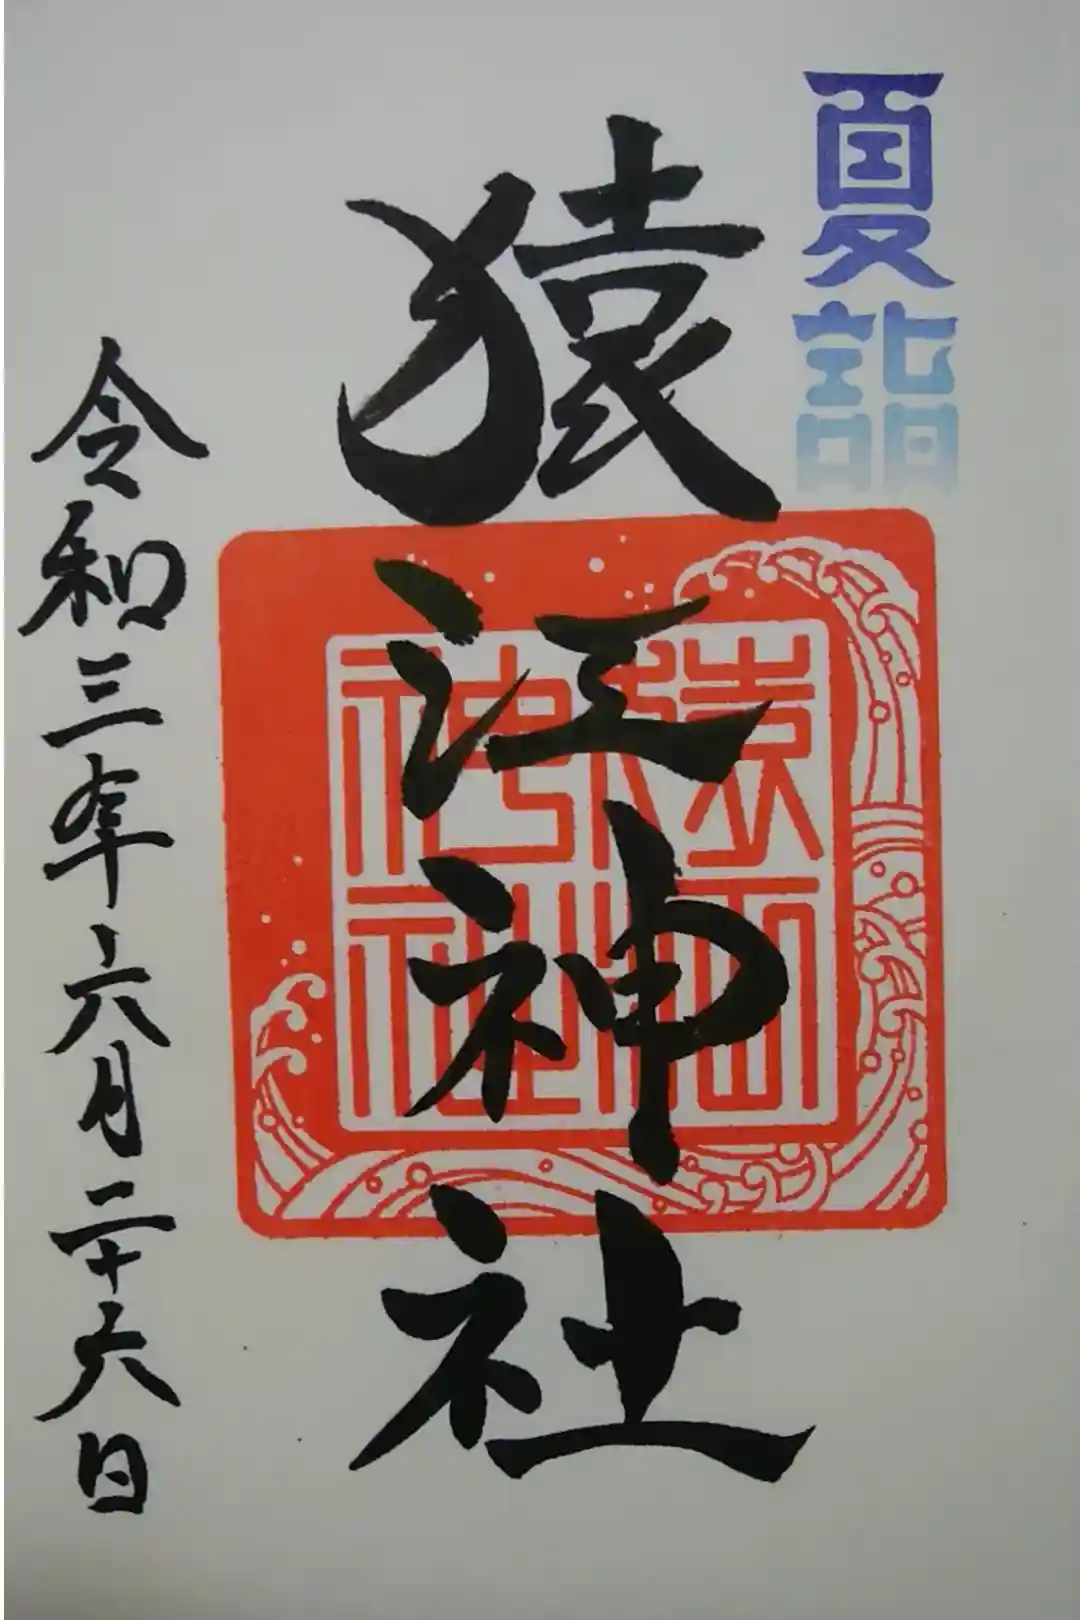 夏詣
猿江神社
令和三年六月二十六日